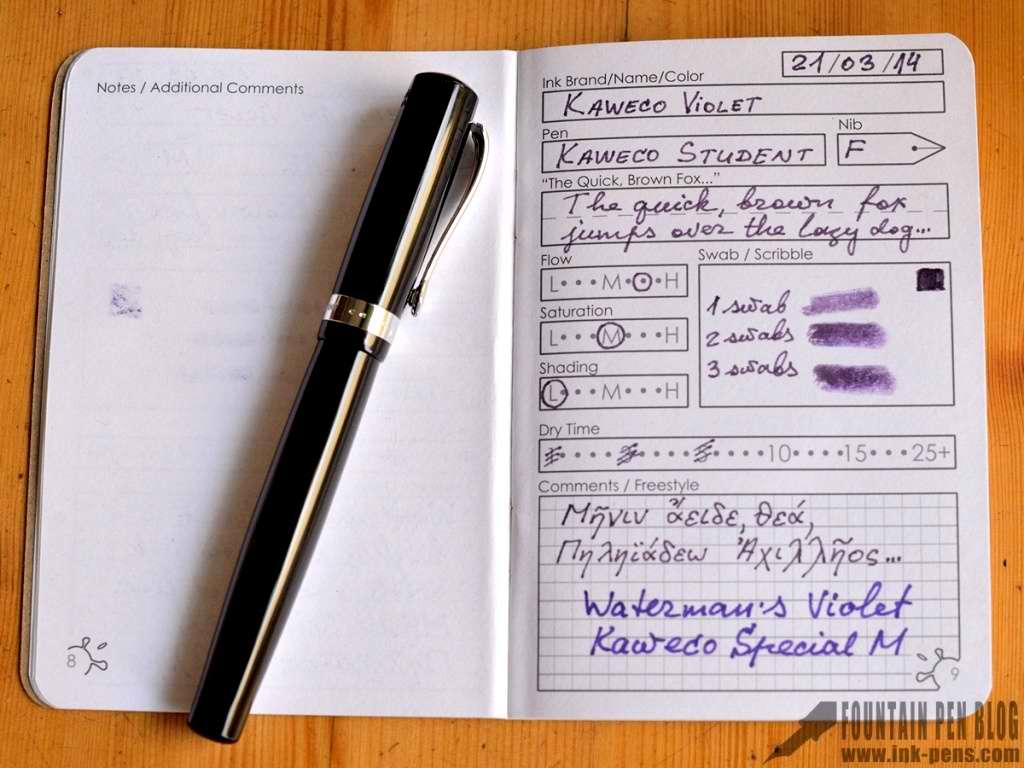 Notes / Additional Comments
8
21/03/14
Ink Brand/Name/Color
KAWECO VIOLET
Pen
Nib
KAWECO STUDENT
F
"The Quick, Brown Fox..."
The quick, brown fox
jumps over the lazy dog...
Flow
L M H
Saturation
L M H
Shading
L M H
Swab / Scribble
1 swab
2 swabs
3 swabs
Dry Time
10 15 25+
Comments / Freestyle
Μῆνιν ἄειδε, θεά,
Πηληϊάδεω Ἀχιλλῆος...
Waterman's Violet
Kaweco Special M
9
FOUNTAIN PEN BLOG
www.ink-pens.com